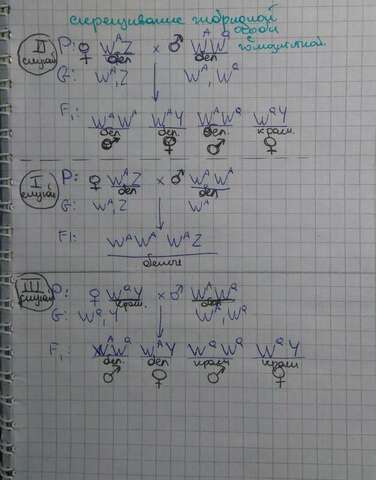 скрещивание гибридной особи с гомозиготной.
II случай P: ♀ WᴬZ бел × ♂ WᴬWᵃ бел
G: Wᴬ, Z Wᴬ, Wᵃ
F₁: WᴬWᴬ WᴬY WᴬWᵃ WᵃY
бел. бел. бел. красн.
♂ ♀ ♂ ♀
I случай P: ♀ WᴬZ бел × ♂ WᴬWᴬ бел
G: Wᴬ, Z Wᴬ
F1: WᴬWᴬ WᴬZ
белые
III случай P: ♀ WᵃY красн. × ♂ WᴬWᵃ бел
G: Wᵃ, Y Wᴬ, Wᵃ
F₁: WᴬWᵃ WᴬY WᵃWᵃ WᵃY
бел. бел красн красн
♂ ♀ ♂ ♀